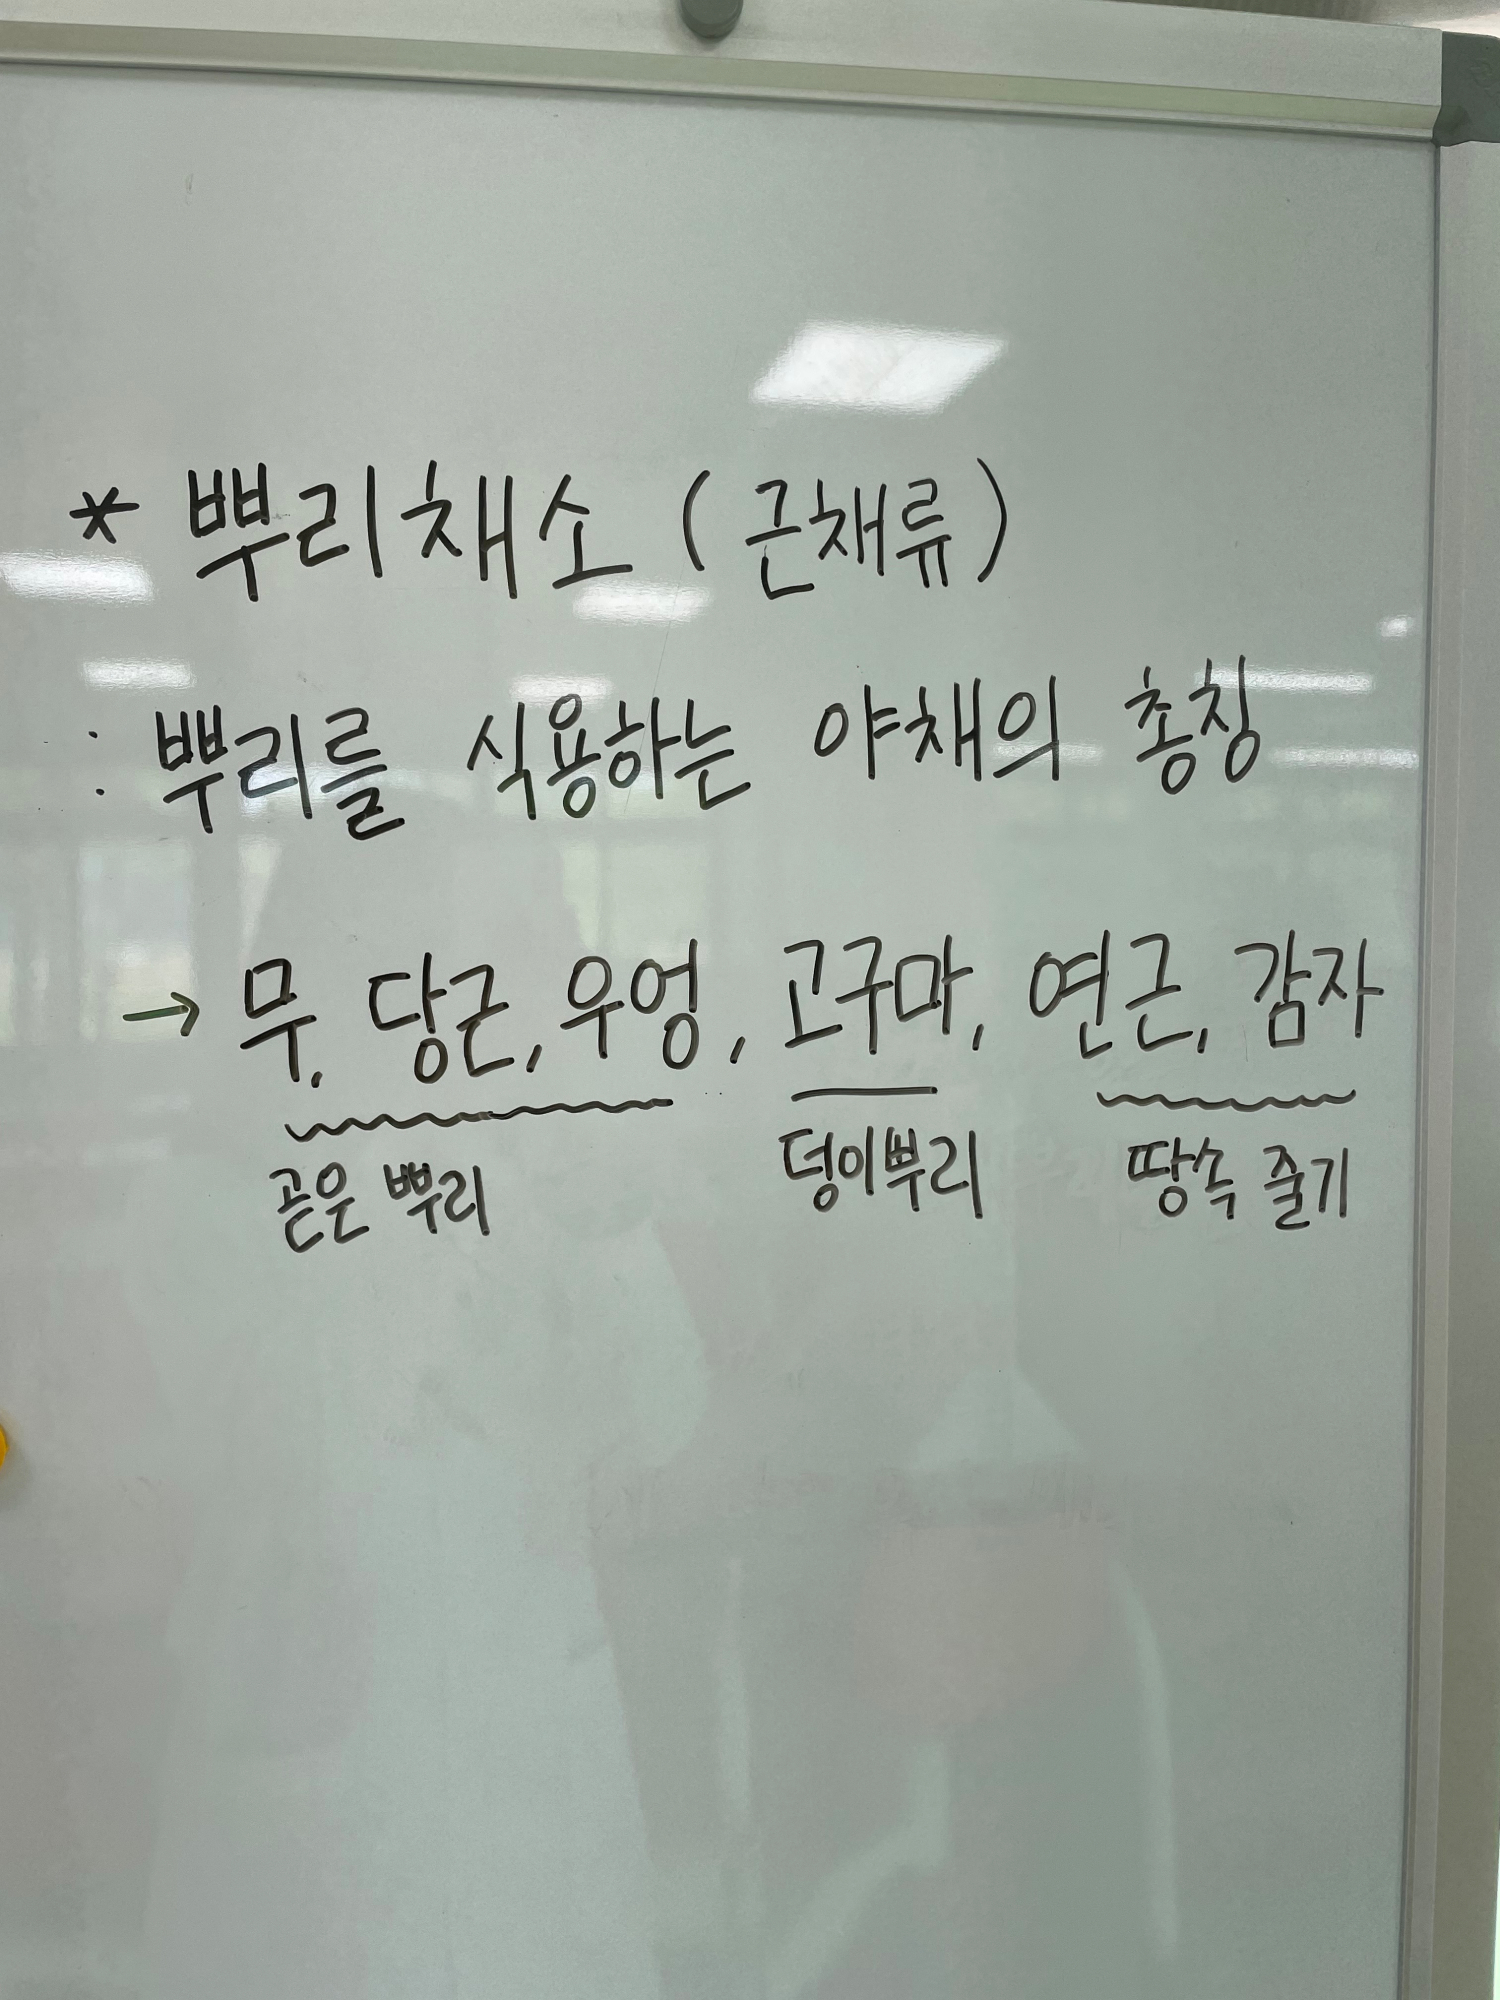 * 뿌리채소 (근채류)
: 뿌리를 식용하는 야채의 총칭
→ 무, 당근, 우엉, 고구마, 연근, 감자
곧은 뿌리 덩이뿌리 땅속 줄기